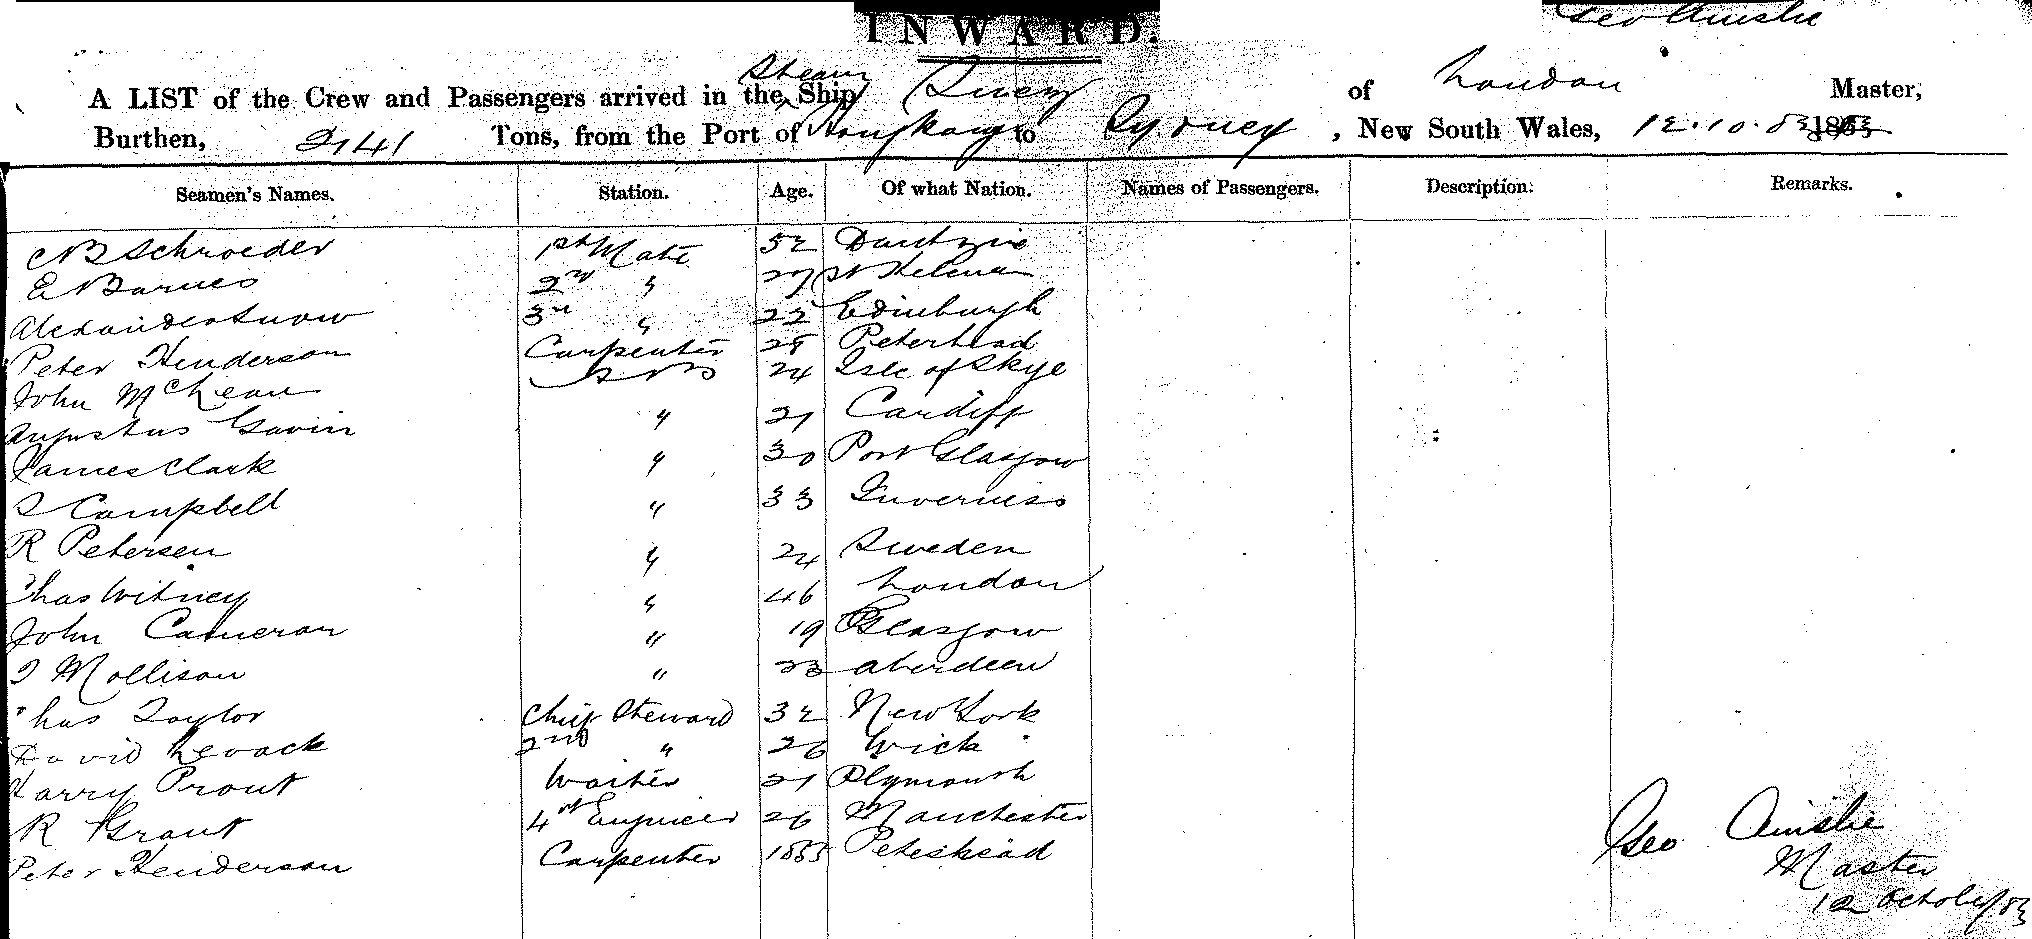 Geo Ainslie
INWARD.
A LIST of the Crew and Passengers arrived in the Steam Ship of London Master,
Burthen, 2141 Tons, from the Port of Hongkong to Sydney, New South Wales, 12.10.83
Seamen's Names. Station. Age. Of what Nation. Names of Passengers. Description. Remarks.
Schroeder 1st Mate 52 Dantzic
E Barnes 2nd " 27 St Helena
Alexander Snow 3rd " 22 Edinburgh
Peter Henderson Carpenter 28 Peterhead
John McLean 24 Isle of Skye
Augustus Gavin " 21 Cardiff
James Clark " 30 Port Glasgow
Campbell " 33 Inverness
R Petersen " 24 Sweden
Chas Witney " 46 London
John Cameron " 19 Glasgow
Mollison " 23 Aberdeen
Chas Taylor Chief Steward 32 New York
David Levack 2nd " 26 Wick
Harry Prout Waiter 21 Plymouth
R Grant 4th Engineer 26 Manchester
Peter Henderson Carpenter Peterhead
Geo Ainslie
Master
12 October/83